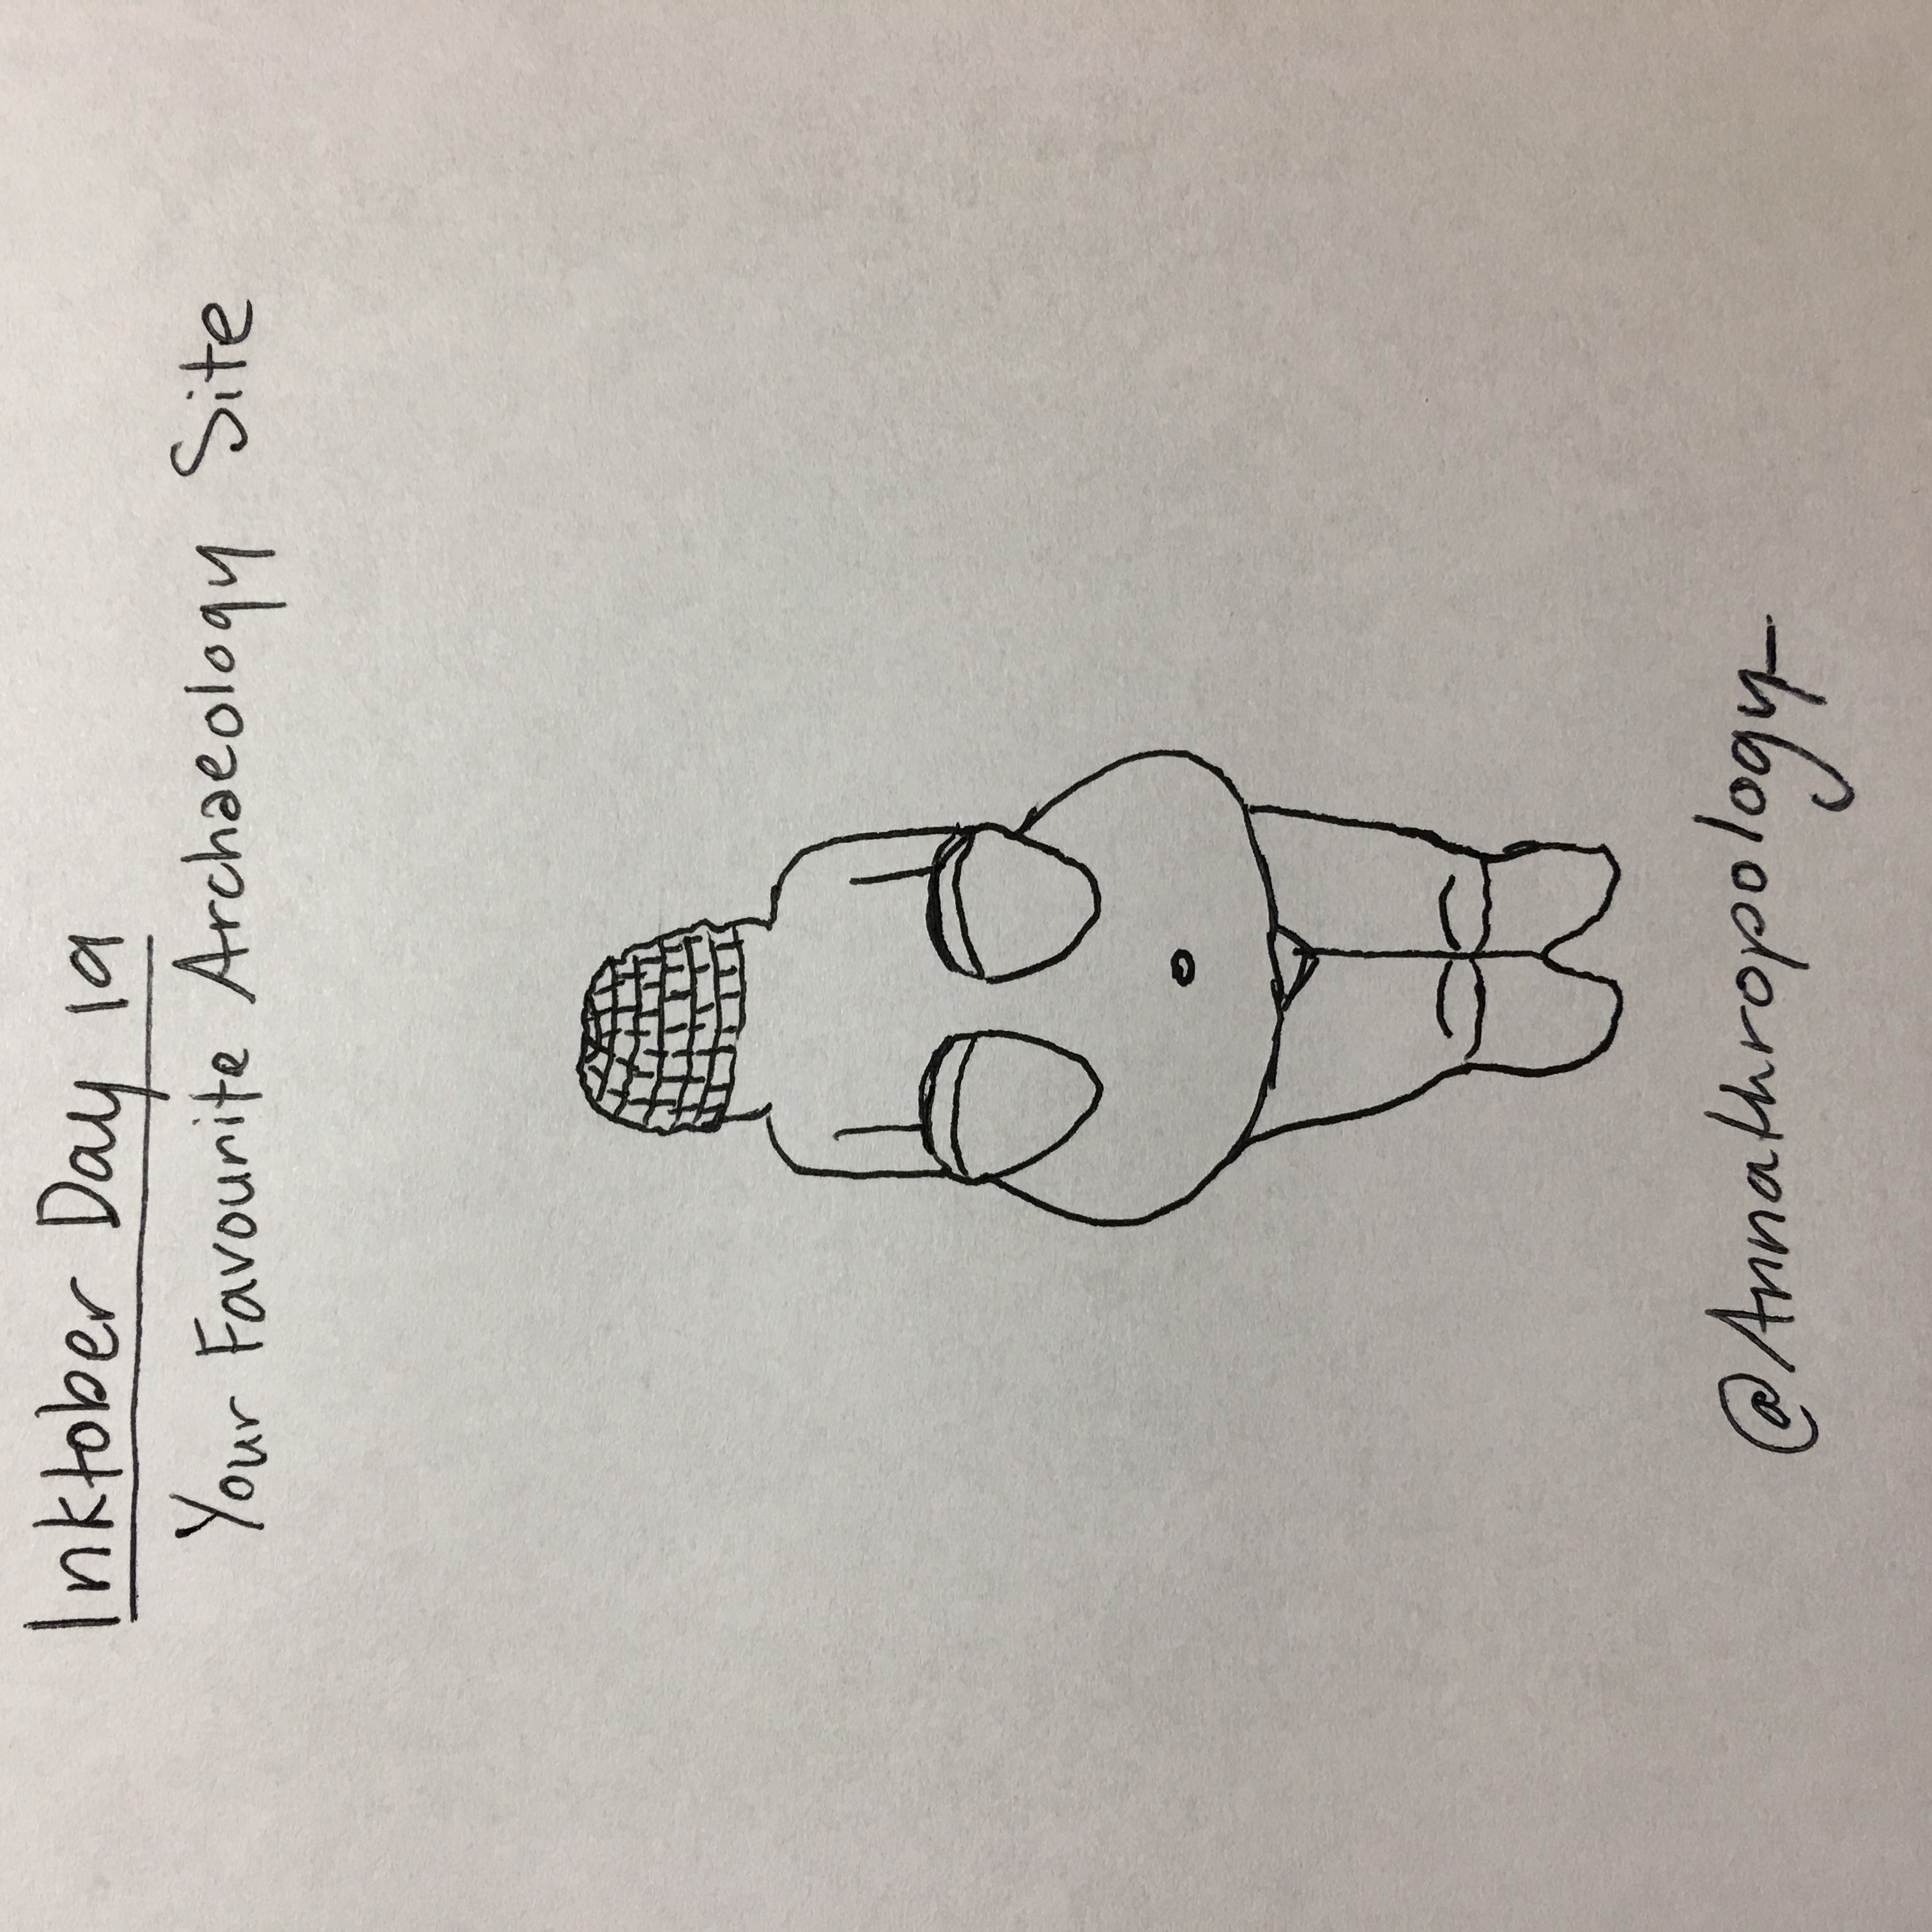 Inktober Day 19
Your Favourite Archaeology Site
@Annathropology_